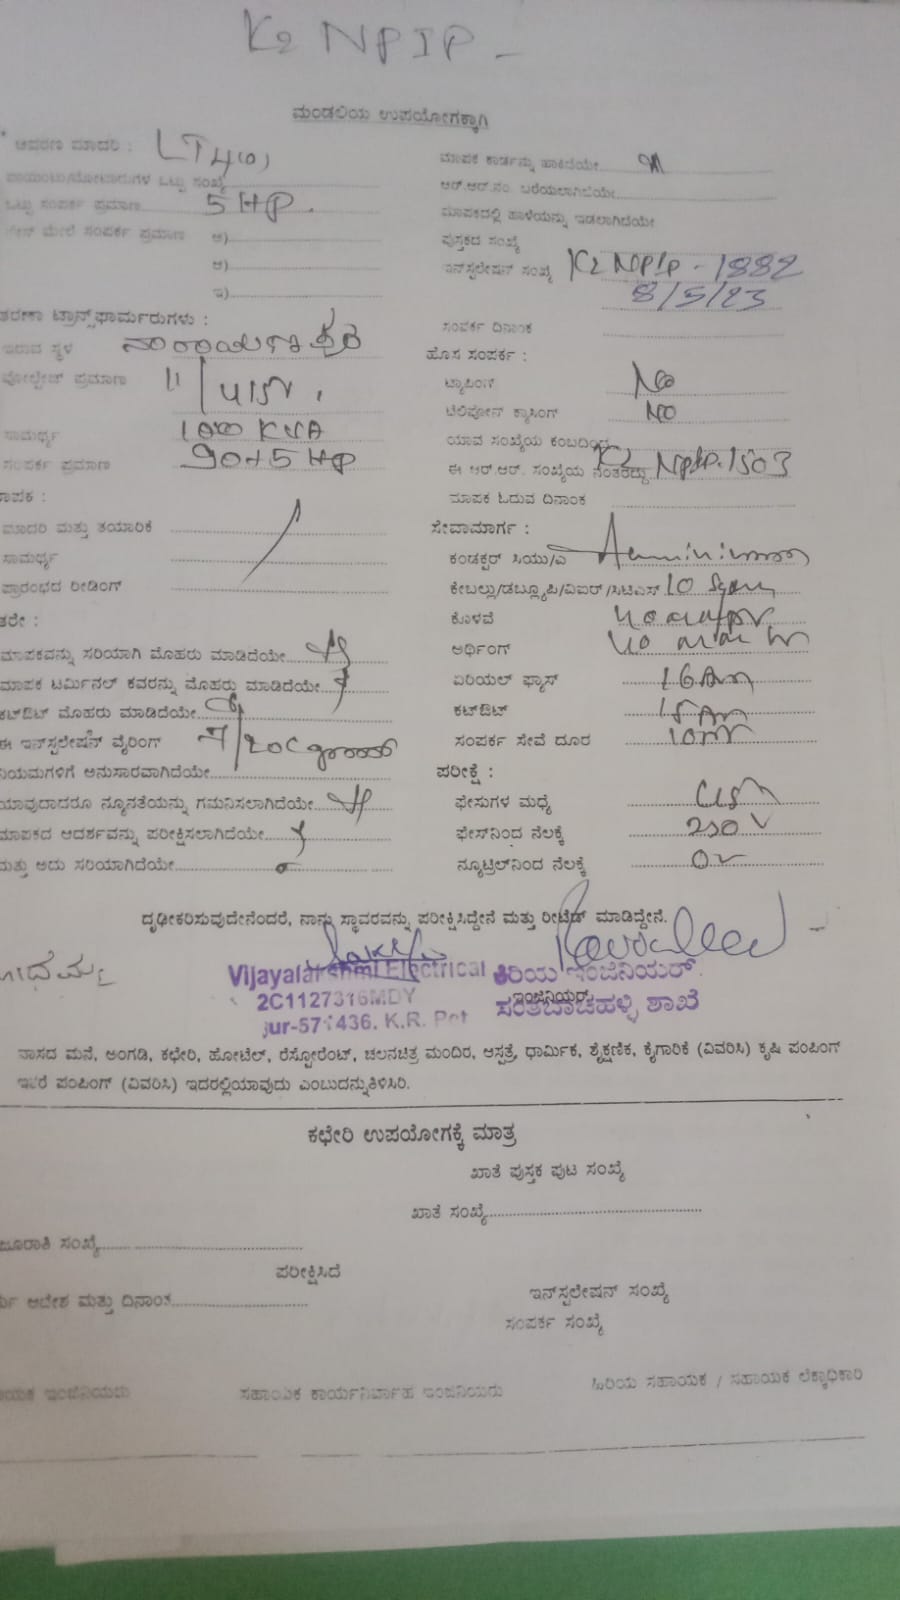 K2 NPIP -
ಮಂಡಲಿಯ ಉಪಯೋಗಕ್ಕಾಗಿ
ಆವರಣ ಮಾದರಿ : LT4(a)
ಒಟ್ಟು ಸಂಖ್ಯೆ
ಒಟ್ಟು ಸಂಪರ್ಕ ಪ್ರಮಾಣ 5 HP.
ಮೇಲೆ ಸಂಪರ್ಕ ಪ್ರಮಾಣ ಅ)
ಆ)
ಇ)
ಟ್ರಾನ್ಸ್‌ಫಾರ್ಮರುಗಳು :
ಇರುವ ಸ್ಥಳ
ವೋಲ್ಟೇಜ್ ಪ್ರಮಾಣ 11/
ಸಾಮರ್ಥ್ಯ 100 KVA
ಸಂಪರ್ಕ ಪ್ರಮಾಣ 90+5 HP
ಮಾದರಿ ಮತ್ತು ತಯಾರಿಕೆ
ಸಾಮರ್ಥ್ಯ
ಪ್ರಾರಂಭದ ರೀಡಿಂಗ್
ಮಾಪಕವನ್ನು ಸರಿಯಾಗಿ ಮೊಹರು ಮಾಡಿದೆಯೇ
ಮಾಪಕ ಟರ್ಮಿನಲ್ ಕವರನ್ನು ಮೊಹರು ಮಾಡಿದೆಯೇ
ಕಟ್‌ಔಟ್ ಮೊಹರು ಮಾಡಿದೆಯೇ
ಈ ಇನ್‌ಸ್ಟಲೇಷನ್ ವೈರಿಂಗ್
ನಿಯಮಗಳಿಗೆ ಅನುಸಾರವಾಗಿದೆಯೇ
ಯಾವುದಾದರೂ ನ್ಯೂನತೆಯನ್ನು ಗಮನಿಸಲಾಗಿದೆಯೇ
ಮಾಪಕದ ಆದರ್ಶವನ್ನು ಪರೀಕ್ಷಿಸಲಾಗಿದೆಯೇ
ಮತ್ತು ಅದು ಸರಿಯಾಗಿದೆಯೇ
ಮಾಪಕ ಕಾರ್ಡನ್ನು ಹಾಕಿದೆಯೇ
ಆರ್.ಆರ್.ನಂ. ಬರೆಯಲಾಗಿದೆಯೇ
ಮಾಪಕದಲ್ಲಿ ಹಾಳೆಯನ್ನು ಇಡಲಾಗಿದೆಯೇ
ಪುಸ್ತಕದ ಸಂಖ್ಯೆ
ಇನ್‌ಸ್ಟಲೇಷನ್ ಸಂಖ್ಯೆ K2 NPIP - 1882
8/5/23
ಸಂಪರ್ಕ ದಿನಾಂಕ
ಹೊಸ ಸಂಪರ್ಕ :
ಟ್ಯಾಪಿಂಗ್ No
ಟೆಲಿಫೋನ್ ಕ್ರಾಸಿಂಗ್ NO
ಯಾವ ಸಂಖ್ಯೆಯ ಕಂಬದಿಂದ
ಈ ಆರ್.ಆರ್. ಸಂಖ್ಯೆಯ ನಂತರದ್ದು K2 NPIP-1503
ಮಾಪಕ ಓದುವ ದಿನಾಂಕ
ಸೇವಾಮಾರ್ಗ :
ಕಂಡಕ್ಟರ್ ಸಿಯು/ಎ
ಕೇಬಲ್ಲು/ಡಬ್ಲ್ಯೂಪಿ/ವಿಐಆರ್/ಸಿಟಿಎಸ್ 10
ಕೊಳವೆ
ಅರ್ಥಿಂಗ್
ಏರಿಯಲ್ ಫ್ಯೂಸ್ 16 Am
ಕಟ್‌ಔಟ್ 15 Am
ಸಂಪರ್ಕ ಸೇವೆ ದೂರ
ಪರೀಕ್ಷೆ :
ಫೇಸುಗಳ ಮಧ್ಯೆ
ಫೇಸ್‌ನಿಂದ ನೆಲಕ್ಕೆ 230 V
ನ್ಯೂಟ್ರಲ್‌ನಿಂದ ನೆಲಕ್ಕೆ 0v
ದೃಢೀಕರಿಸುವುದೇನೆಂದರೆ, ನಾನು ಸ್ಥಾವರವನ್ನು ಪರೀಕ್ಷಿಸಿದ್ದೇನೆ ಮತ್ತು ರೀಟೆಡ್ ಮಾಡಿದ್ದೇನೆ.
Vijayalakshmi Electrical
2C1127316MDY
jur-571436. K.R. Pet
ಕಿರಿಯ ಇಂಜಿನಿಯರ್
ಇಂಜಿನಿಯರ್
ಸಂತೆಬಾಚಹಳ್ಳಿ ಶಾಖೆ
ವಾಸದ ಮನೆ, ಅಂಗಡಿ, ಕಛೇರಿ, ಹೋಟೆಲ್, ರೆಸ್ಟೋರೆಂಟ್, ಚಲನಚಿತ್ರ ಮಂದಿರ, ಆಸ್ಪತ್ರೆ, ಧಾರ್ಮಿಕ, ಶೈಕ್ಷಣಿಕ, ಕೈಗಾರಿಕೆ (ವಿವರಿಸಿ) ಕೃಷಿ ಪಂಪಿಂಗ್
ಇತರೆ ಪಂಪಿಂಗ್ (ವಿವರಿಸಿ) ಇದರಲ್ಲಿಯಾವುದು ಎಂಬುದನ್ನುತಿಳಿಸಿರಿ.
ಕಛೇರಿ ಉಪಯೋಗಕ್ಕೆ ಮಾತ್ರ
ಖಾತೆ ಪುಸ್ತಕ ಪುಟ ಸಂಖ್ಯೆ
ಖಾತೆ ಸಂಖ್ಯೆ
ಸಂಖ್ಯೆ
ಪರೀಕ್ಷಿಸಿದೆ
ಆದೇಶ ಮತ್ತು ದಿನಾಂಕ
ಇನ್‌ಸ್ಟಲೇಷನ್ ಸಂಖ್ಯೆ
ಸಂಪರ್ಕ ಸಂಖ್ಯೆ
ಸಹಾಯಕ ಕಾರ್ಯನಿರ್ವಾಹ ಇಂಜಿನಿಯರು
ಹಿರಿಯ ಸಹಾಯಕ / ಸಹಾಯಕ ಲೆಕ್ಕಾಧಿಕಾರಿ